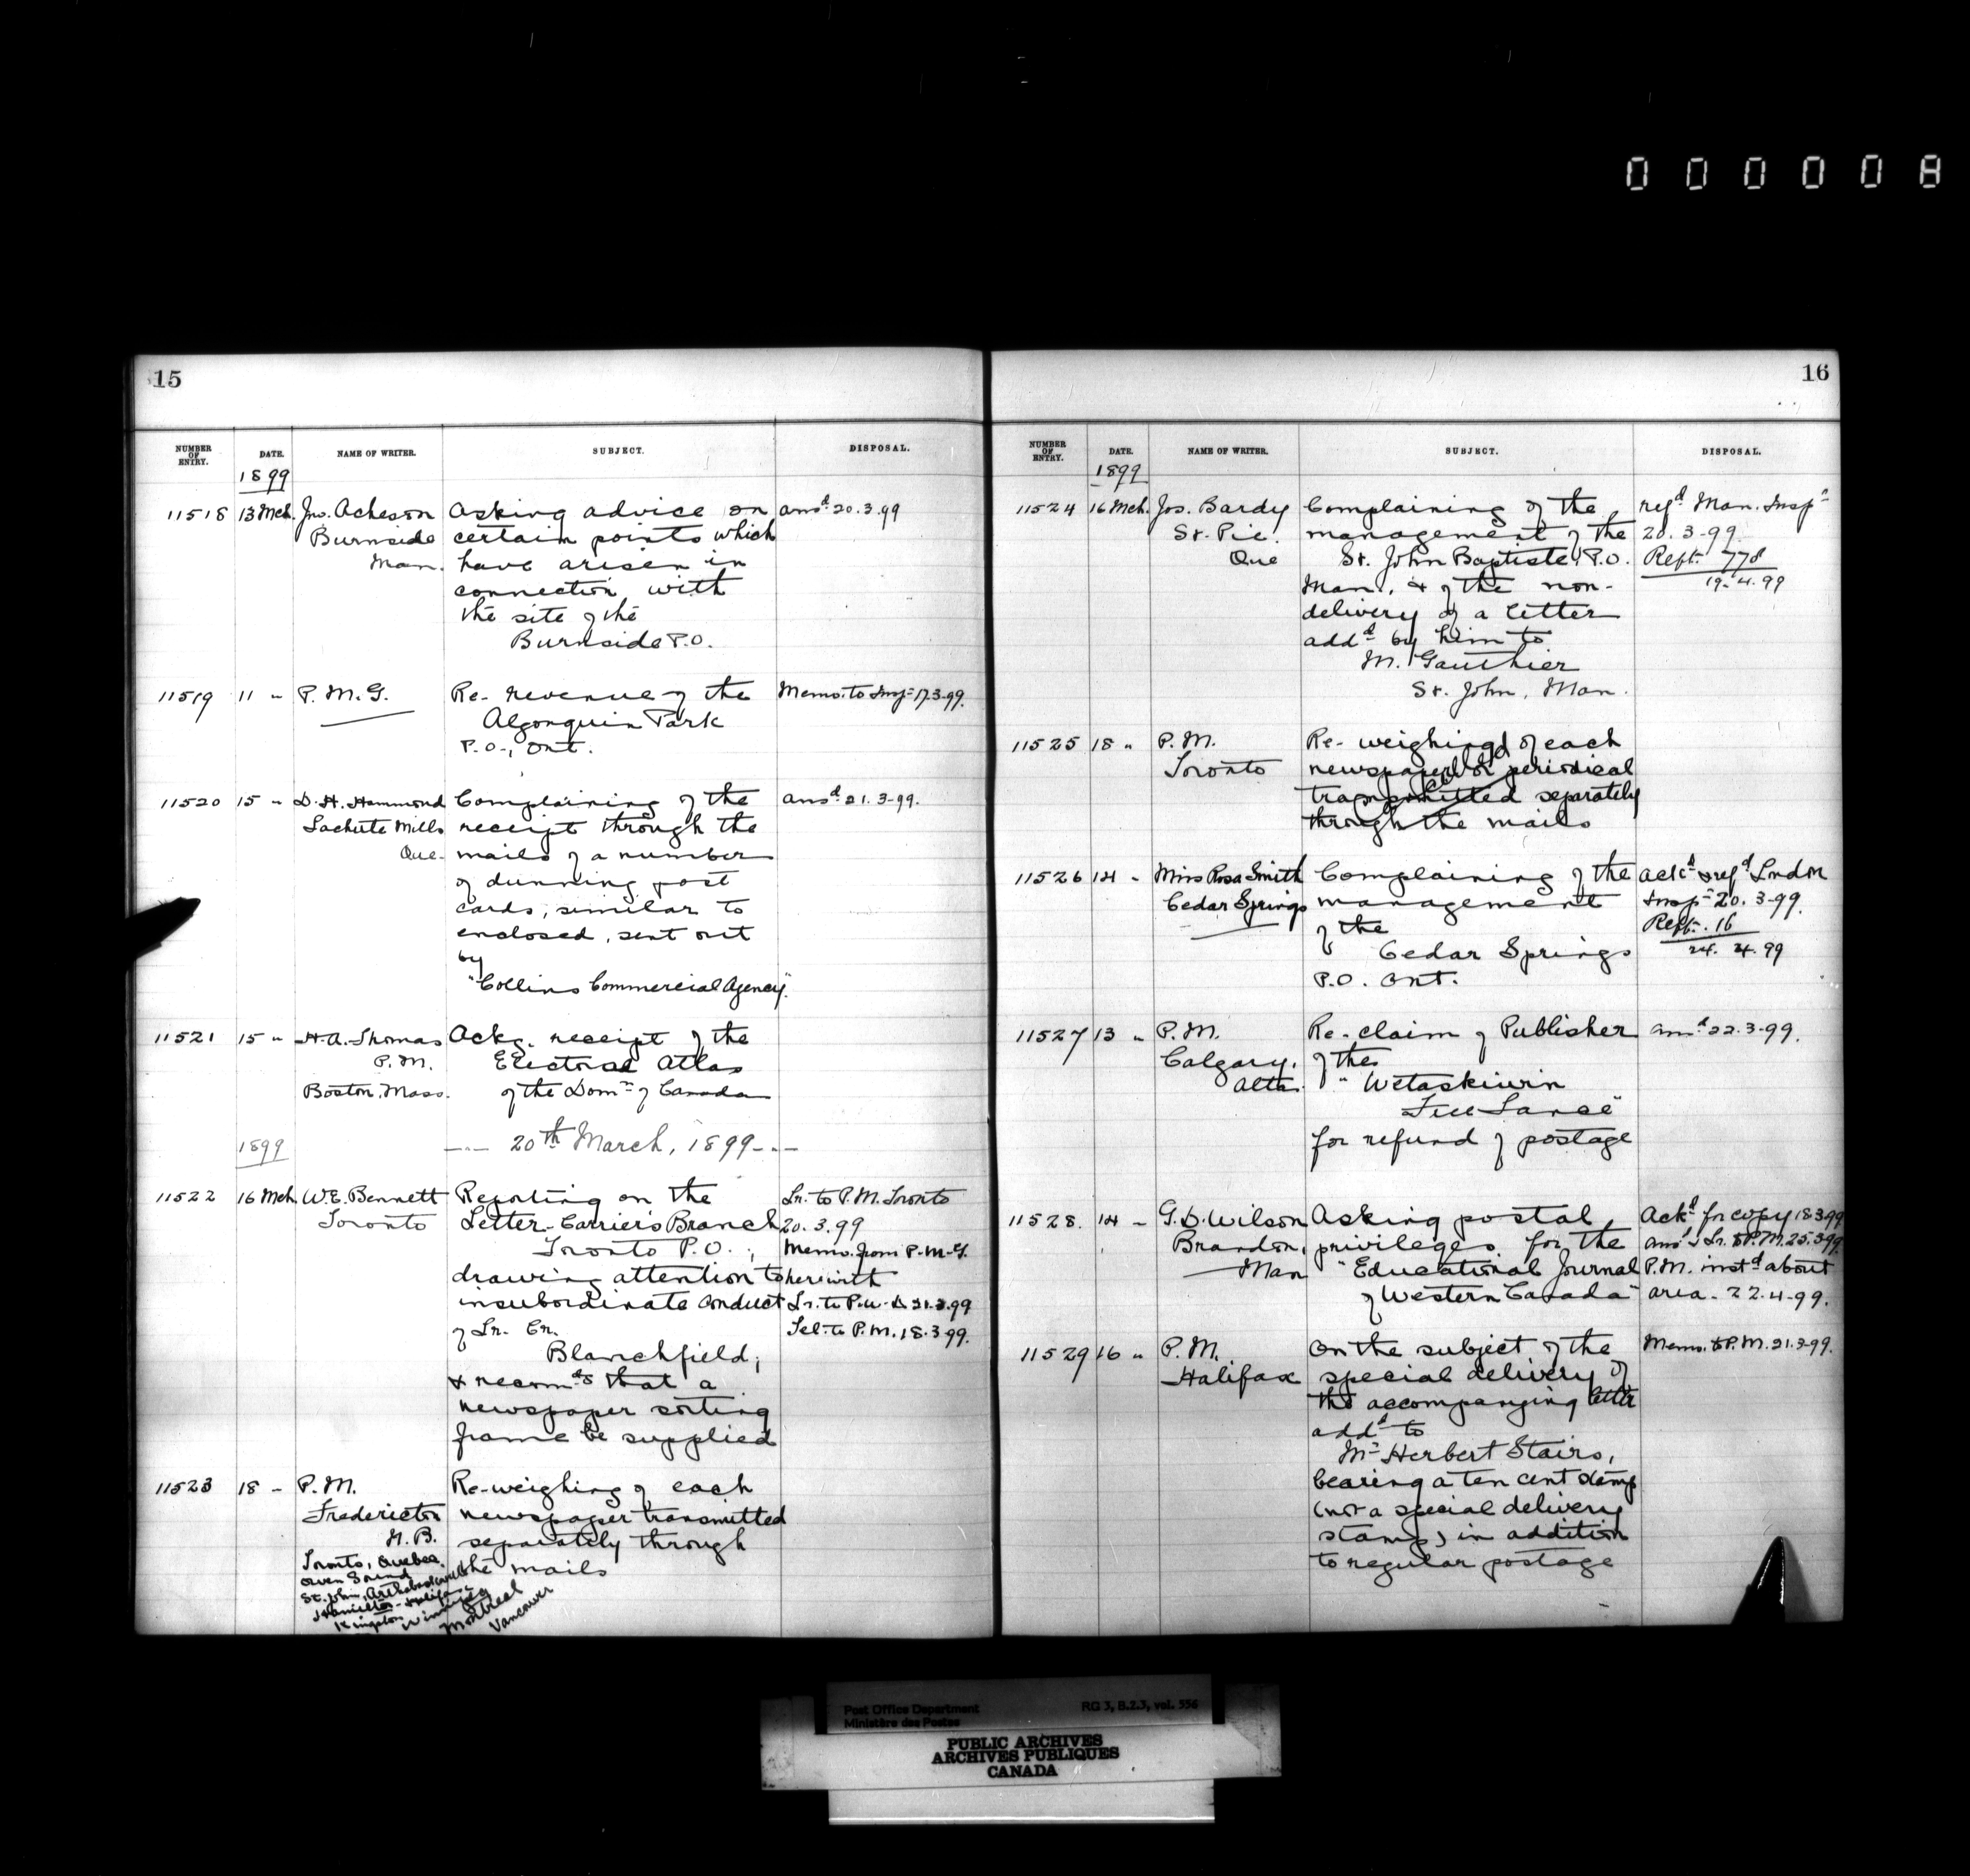 000008
15
NUMBER OF ENTRY. DATE. NAME OF WRITER. SUBJECT. DISPOSAL.
1899
11518 13 Mch. Jno. Acheson Asking advice on ansd 20.3.99
Burnside certain points which
Man. have arisen in
connection with
the site of the
Burnside P.O.
11519 11 " P. M. G. Re- revenue of the Memo. to Insp. 17.3.99.
Algonquin Park
P.O., Ont.
11520 15 " D. H. Hammond Complaining of the ansd 21.3-99.
Lachute Mills receipt through the
Que. mails of a number
of dunning post
cards, similar to
enclosed, sent out
by
"Collins Commercial Agency".
11521 15 " H. A. Thomas Ackg. receipt of the
P.M. Electoral Atlas
Boston, Mass. of the Domn of Canada
1899 20th March, 1899
11522 16 Mch. W.E. Bennett Reporting on the Lr. to P.M. Toronto
Toronto Letter-Carriers Branch 20.3.99
Toronto P.O., Memo. from P.M.G.
drawing attention to herewith
insubordinate conduct Lr. to P.W.D. 21.3.99
of Lr. Cr. Tel. to P.M. 18.3.99.
Blanchfield;
& recomds that a
newspaper sorting
frame be supplied
11523 18 " P.M. Re-weighing of each
Fredericton newspaper transmitted
N.B. separately through
Toronto, Quebec, the mails
Owen Sound
St. John, Arthabaskaville
Hamilton - Halifax
Kingston Winnipeg
Montreal
Vancouver
16
NUMBER OF ENTRY. DATE. NAME OF WRITER. SUBJECT. DISPOSAL.
1899
11524 16 Mch. Jos. Bardy Complaining of the refd Man. Inspr
St. Pie. management of the 20.3-99.
Que St. John Baptiste P.O. Rept. 778
Man., & of the non- 19.4.99
delivery of a letter
addd by him to
M. Gauthier
St. John, Man.
11525 18 " P.M. Re- weighing of each
Toronto newspaper or periodical
transmitted separately
through the mails
11526 14 " Miss Rosa Smith Complaining of the ackd & refd London
Cedar Springs management Inspr 20.3-99.
of the Rept. 16
Cedar Springs 24. 4. 99
P.O. Ont.
11527 13 " P.M. Re-claim of Publisher ansd 22.3-99.
Calgary, of the
Alta. "Wetaskiwin
Free Lance"
for refund of postage
11528. 14 " G.D. Wilson Asking postal Ackd for copy 18.3.99
Brandon, privileges for the ansd & Lr. to P.M. 25.3.99.
Man "Educational Journal P.M. instd about
of Western Canada" area - 22.4-99.
11529 16 " P.M. On the subject of the Memo. to P.M. 21.3-99.
Halifax special delivery of
the accompanying letter
addd to
Mr Herbert Stairs,
bearing a ten cent stamp
(not a special delivery
stamp) in addition
to regular postage
Post Office Department RG 3, B.2.3, vol. 556
Ministère des Postes
PUBLIC ARCHIVES
ARCHIVES PUBLIQUES
CANADA